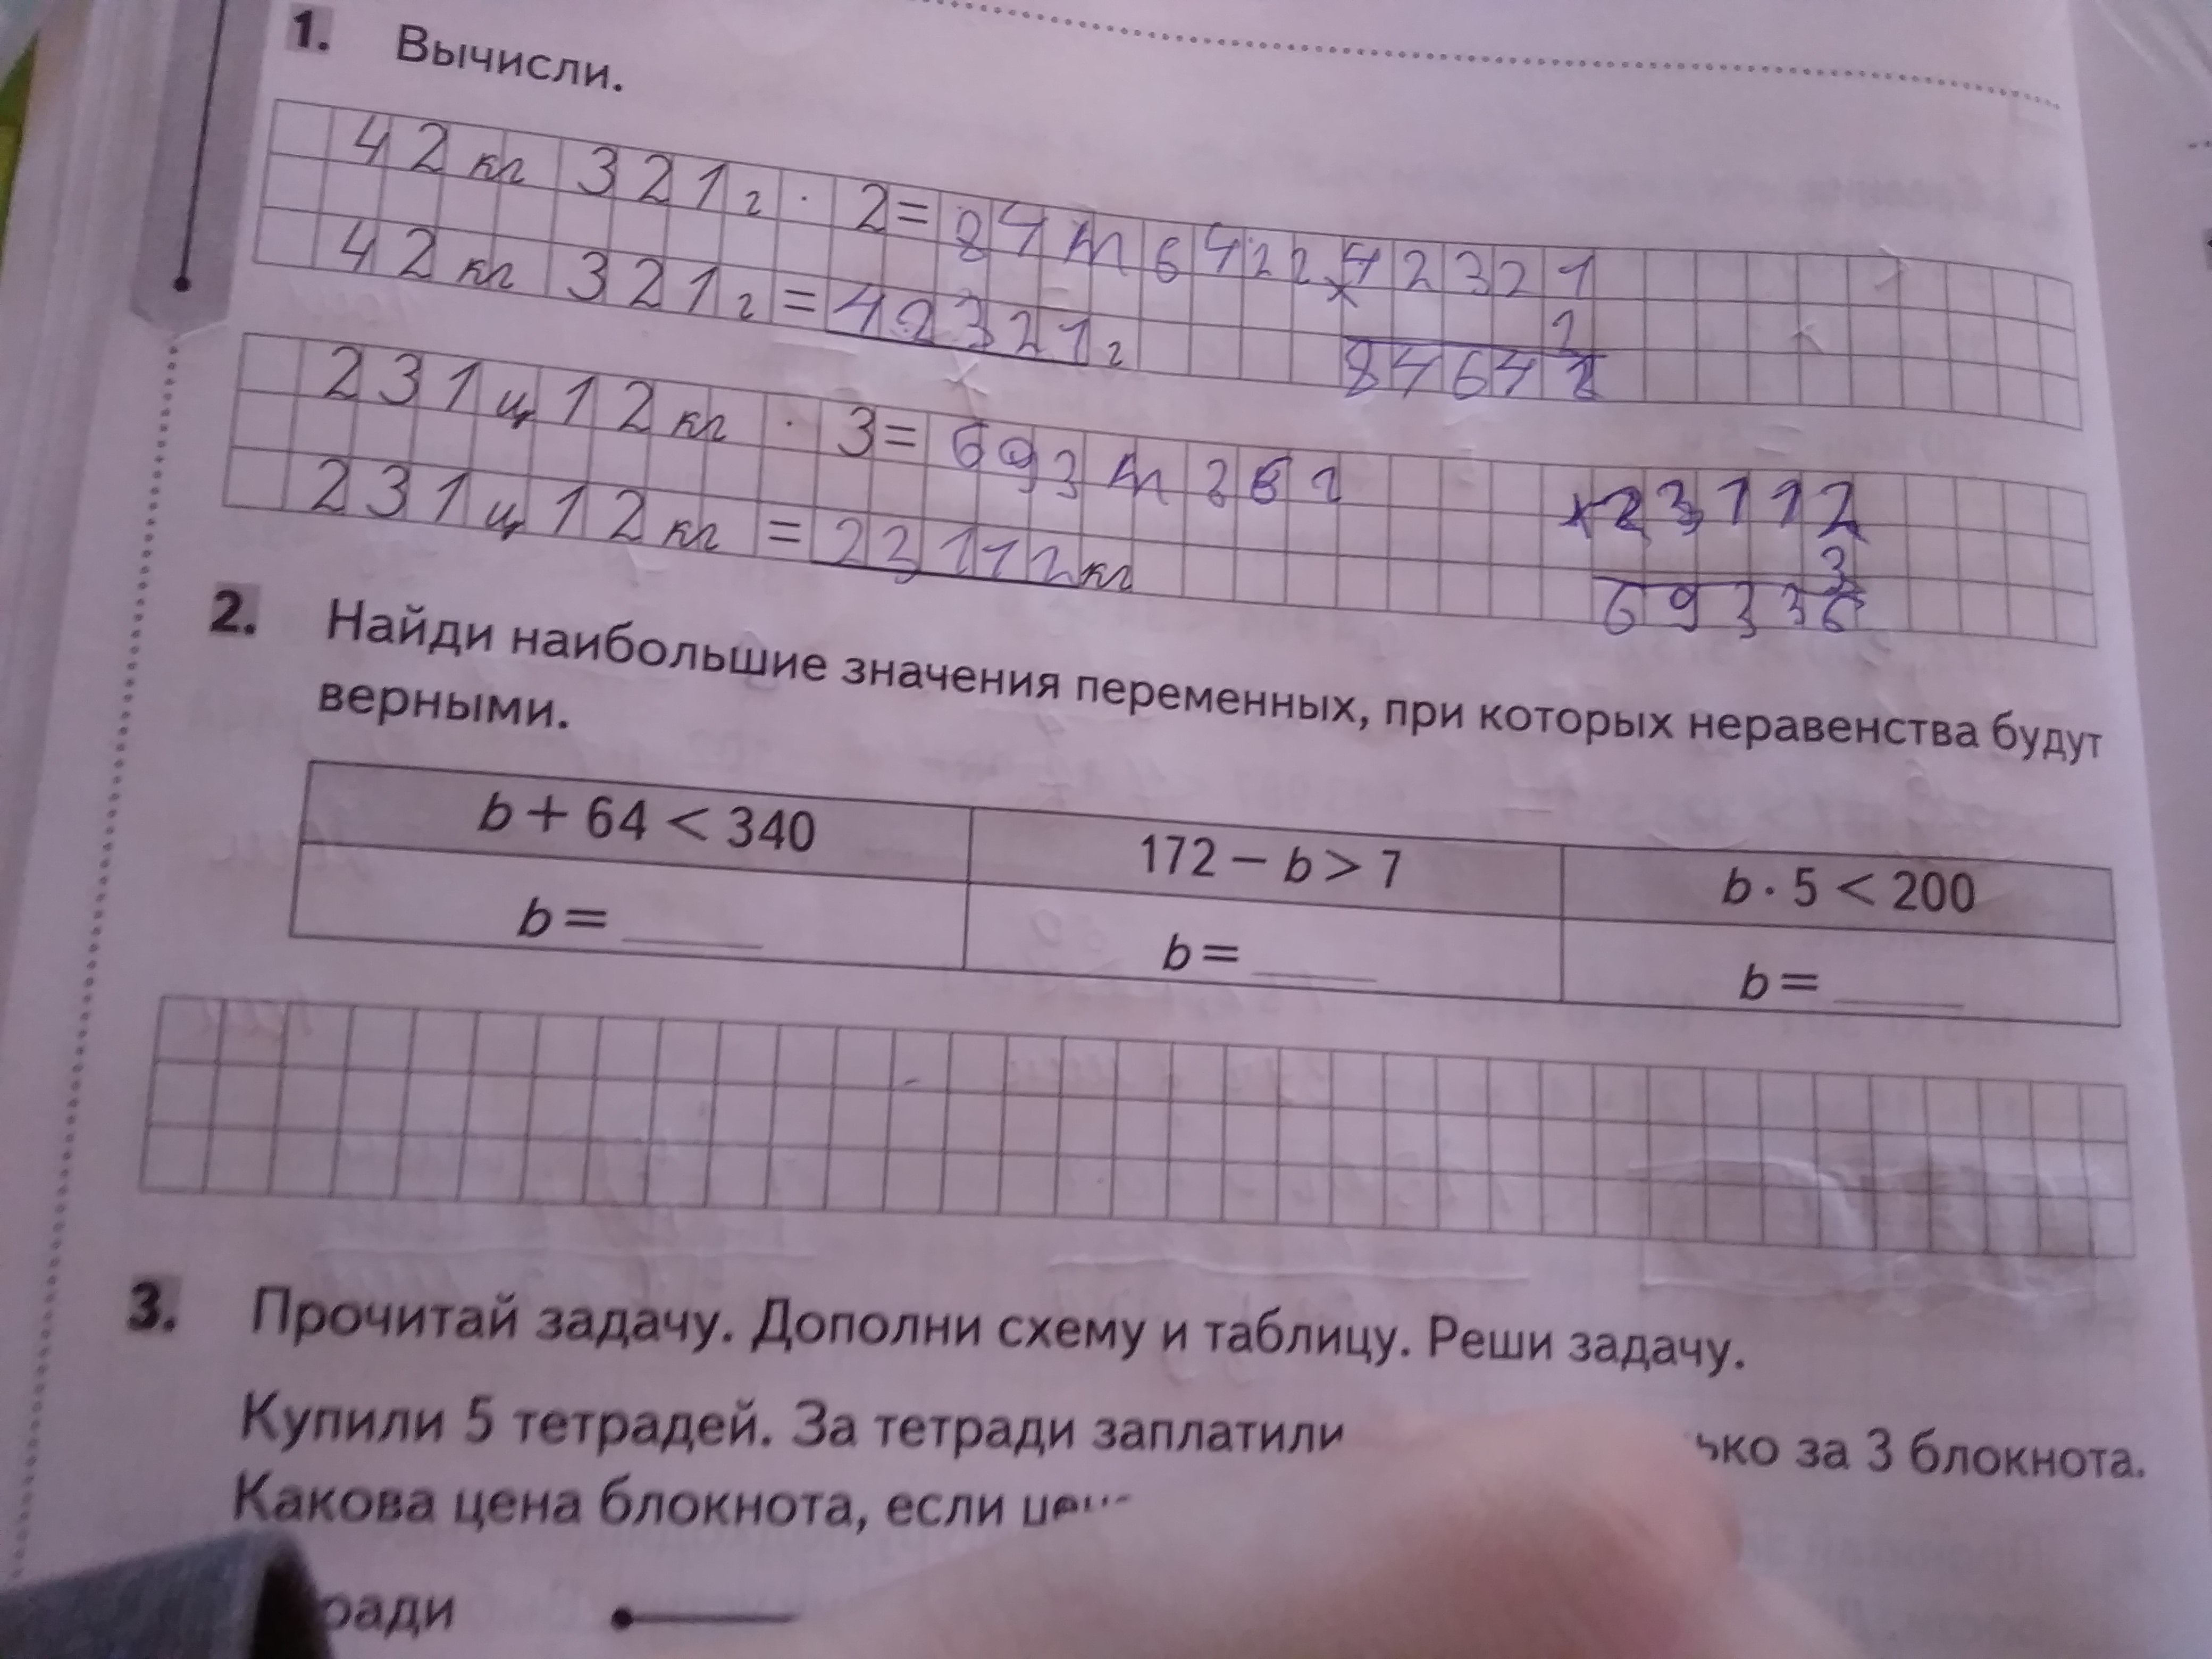 1. Вычисли.
42 кг 321 г · 2 = 84 т 642 г
× 42321
2
84642
42 кг 321 г = 42321 г
231 ц 12 кг · 3 = 693 т 36 г
× 23112
3
69336
231 ц 12 кг = 23112 кг
2. Найди наибольшие значения переменных, при которых неравенства будут
верными.
b + 64 < 340 172 − b > 7 b · 5 < 200
b = ____ b = ____ b = ____
3. Прочитай задачу. Дополни схему и таблицу. Реши задачу.
Купили 5 тетрадей. За тетради заплатили ько за 3 блокнота.
Какова цена блокнота, если
ради